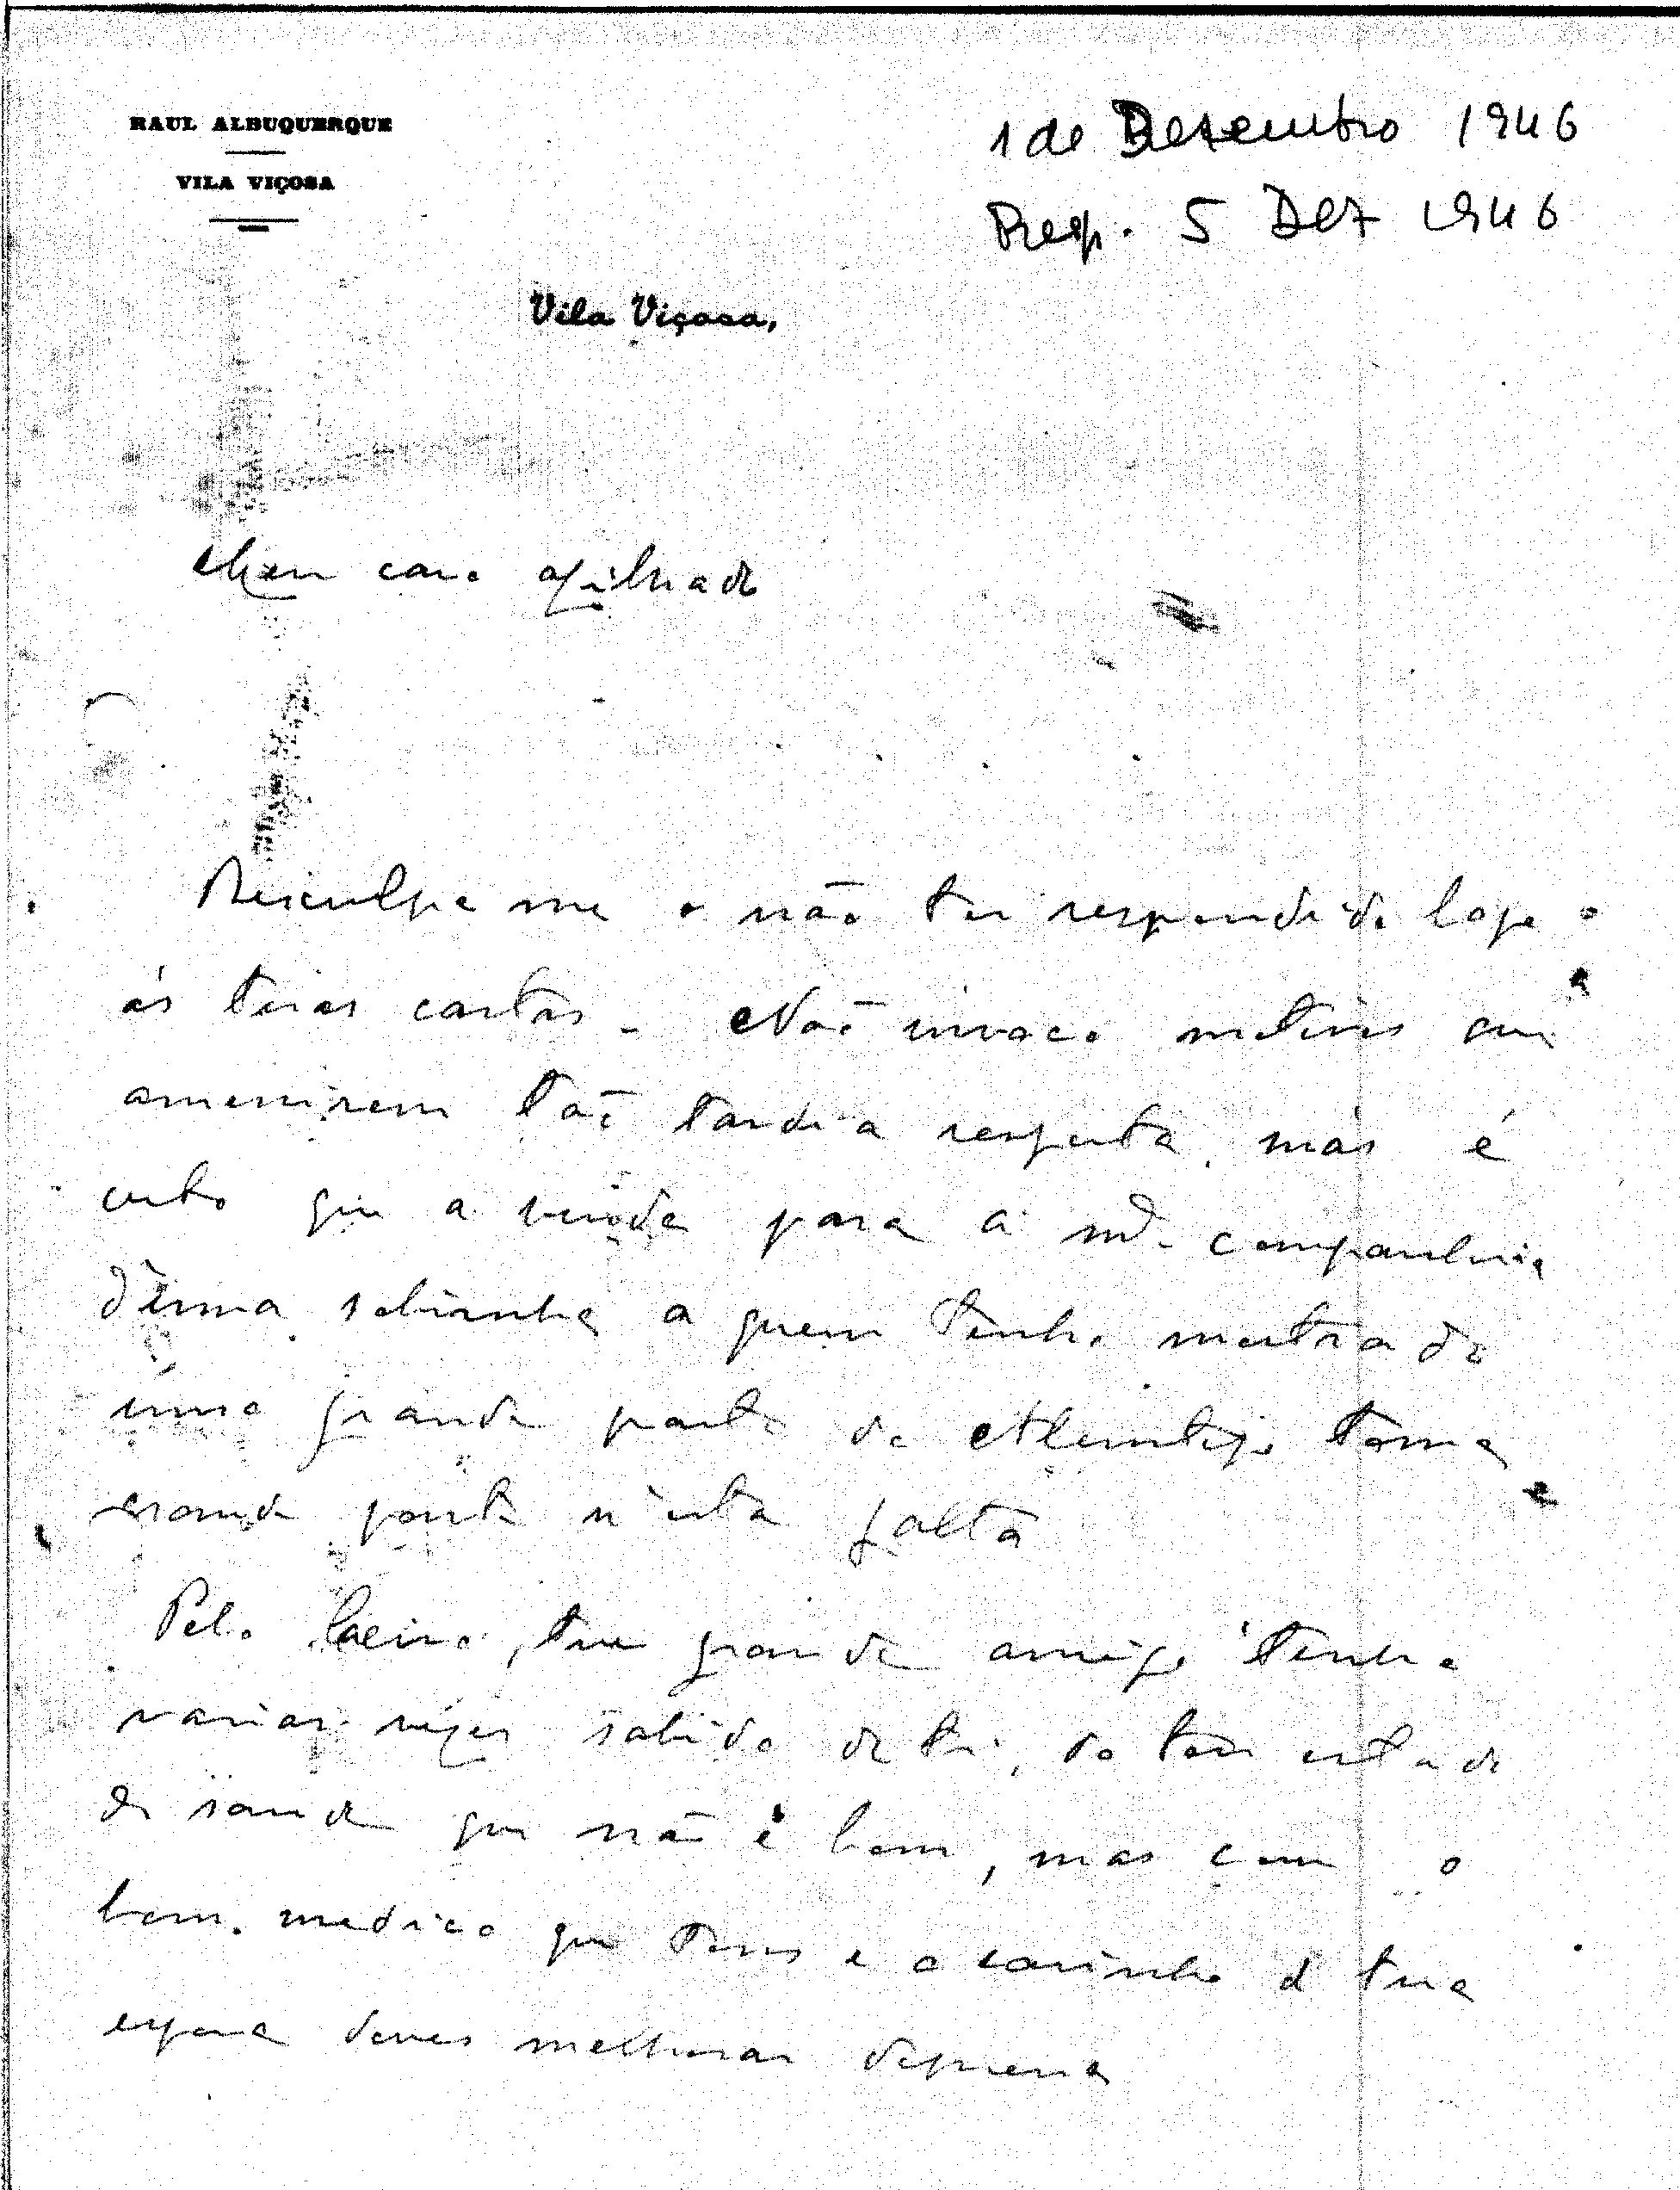 RAUL ALBUQUERQUE
VILA VIÇOSA
1 de Dezembro 1946
Resp. 5 Dez 1946
Vila Viçosa,
Meu caro afilhado
Desculpa me o não ter respondido logo
ás tuas cartas - Não invoco motivos que
amenisem tão tardia resposta, mas é
certo que a vinda para a m.ª companhia
d'uma sobrinha a quem tenho mostrado
uma grande parte do Alemtejo toma
grande parte n'esta falta
Pelo , teu grande amigo tenho
varias vezes sabido de ti, do teu estado
de saude que não é bom, mas com o
bom medico que tens e o carinho de tua
esposa deves melhorar depressa